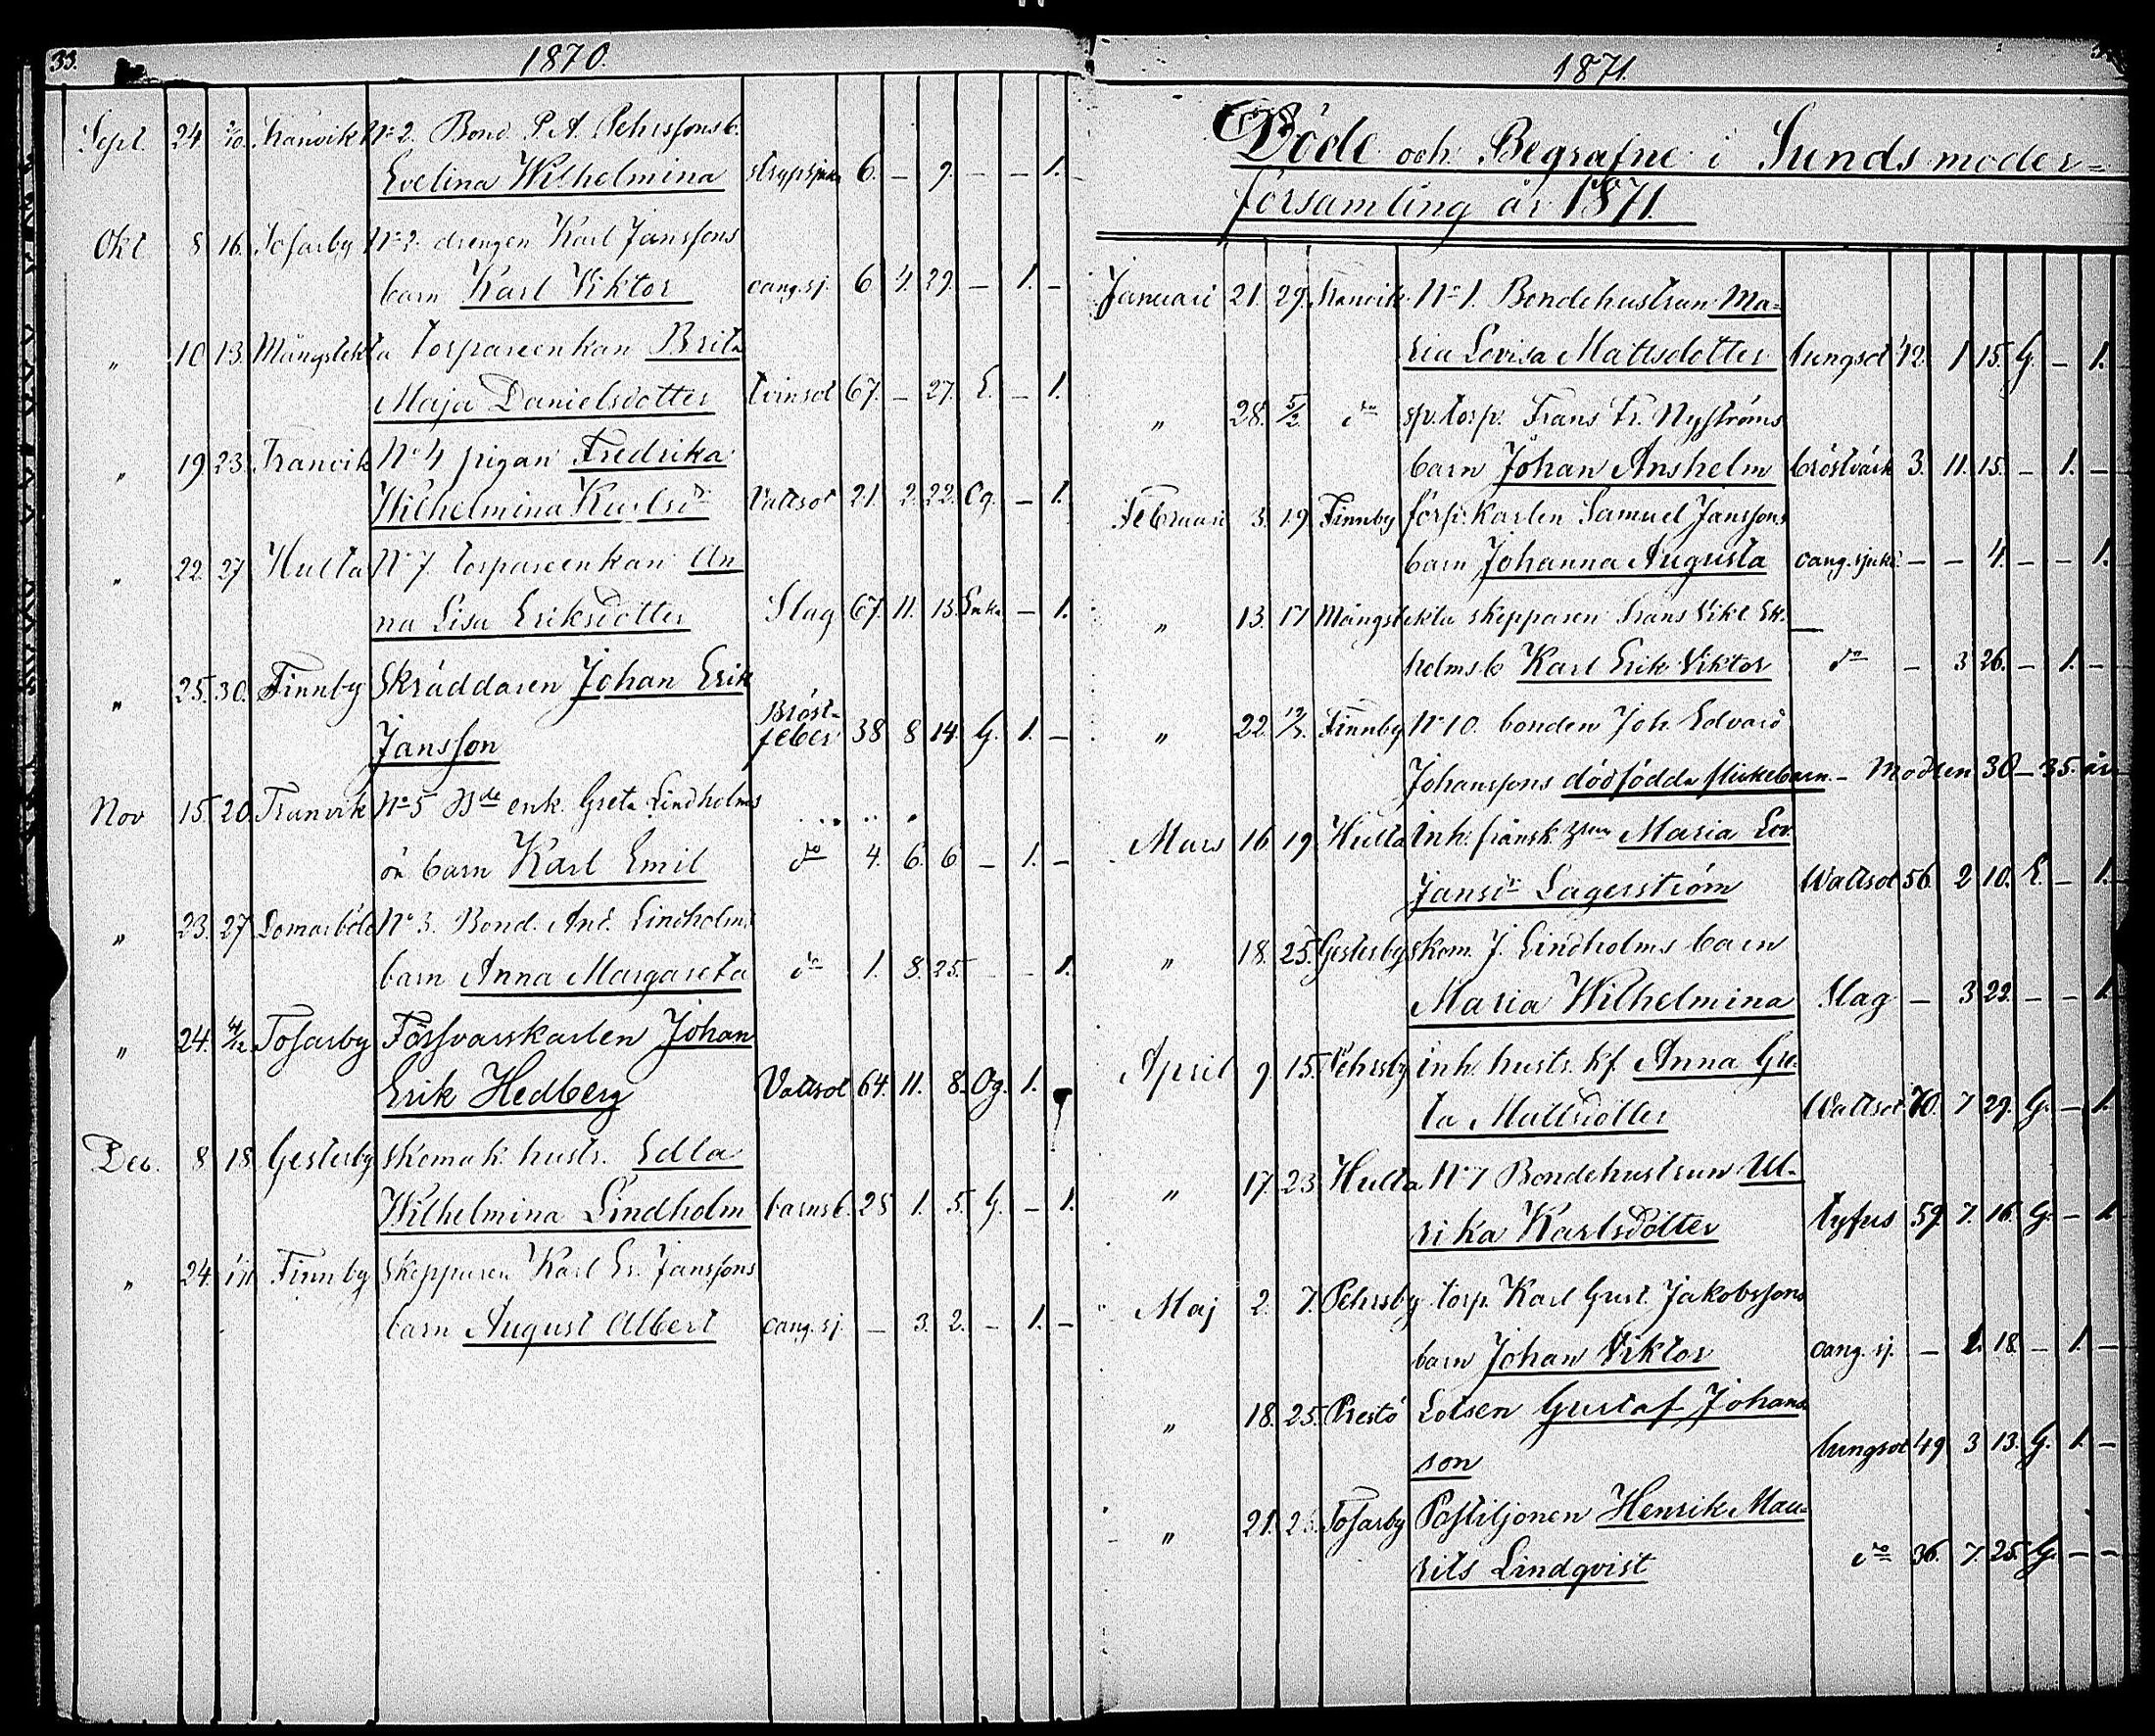 33.
1870.
Sept. 24. 2/10. Tranvik No 2. Bond. P. A. Pehrssons b.
Evelina Wilhelmina strypsjuka 6. – 9. – – 1.
Okt 8 16. Tosarby No 2. drengen Karl Janssons
barn Karl Viktor oang.sj. 6 4. 29. – 1. –
" 10 13. Mångstekta torpareenkan Brita
Maja Danielsdotter tvinsot 67. – 27. E. – 1.
" 19 23. Tranvik No 4 pigan Fredrika
Wilhelmina Karlsdr Vattsot 21. 2. 22. Og. – 1.
" 22 27 Hulta No 7. torpareenkan An
na Lisa Eriksdotter Slag 67. 11. 13. Enka – 1.
" 25. 30. Finnby Skräddaren Johan Erik
Jansson Bröst-
feber 38 8 14. G. 1. –
Nov 15. 20. Tranvik No 5 Bde enk. Greta Lindholms
barn Karl Emil do 4. 6. 6 – 1. –
" 23. 27. Domarböle No 3. Bond. And. Lindholms
barn Anna Margareta do 1. 8. 25. – – 1.
" 24. 4/12 Tosarby Försvarskarlen Johan
Erik Hedberg Vattsot 64. 11. 8. Og. 1.
Dec. 8 18. Gesterby skomak. hustr. Edla
Wilhelmina Lindholm barnsb. 28 1. 5. G. – 1.
" 24. 1/1 Finnby Skepparen Karl Er. Janssons
barn August Albert oang.sj. – 3. 2. – 1. –
1871.
Döde och Begrafne i Sunds moder-
församling år 1871.
Januari 21. 29. Tranvik No 1. Bondehustrun Ma-
ria Lovisa Mattsdotter lungsot 42. 1 15. G. – 1.
" 28. 5/2. do sp.torp. Frans Fr. Nyströms
barn Johan Anshelm bröstvärk 3. 11. 15. – 1. –
Februari 3. 19 Finnby förs.karlen Samuel Janssons
barn Johanna Augusta oang.sjukd. – – 4. – – 1.
" 13. 17 Mångstekta skepparen Frans Vikt. Ek-
holms b Karl Erik Viktor do – 3 26. – 1. –
" 22. 12/3. Finnby No 10. bonden Joh. Edvard
Johanssons dödfödda flickebarn. – Modren 30–35. år
Mars 16 19 Hulta Inh. frånsk. Maria Lov.
Jansdr Lagerström Wattsot 56. 2 10. E. – 1.
" 18. 25. Gesterby skom. J. Lindholms barn
Maria Wilhelmina Slag – 3 22. – – 1.
April 9. 15. Pehrsby inh. hustr. kf. Anna Gre-
ta Mattsdotter Wattsot. 70. 7 29. G. – 1.
" 17. 23. Hulta No 7 Bondehustrun Ul-
rika Karlsdotter tyfus 59. 7. 16. G. – 1.
Maj 2. 7. Pehrsby torp. Karl Gust. Jakobssons
barn Johan Viktor oang. sj. – 1. 18. – 1. –
" 18. 25. Prestö Lotsen Gustaf Johans-
son lungsot 49. 3 13. G. 1. –
" 21. Tosarby Postiljonen Henrik Mau-
rits Lindqvist do 36. 7. 25. G. – –